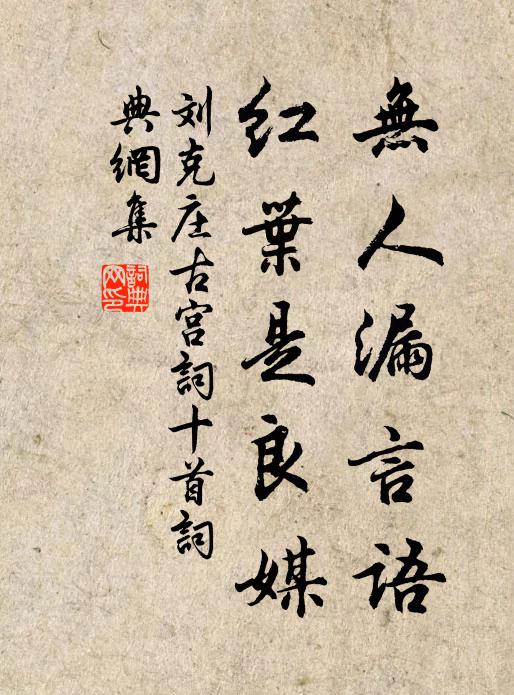 無人漏言語
紅葉是良媒
刘克庄古宫詞十首詞
典網集
詞典網印